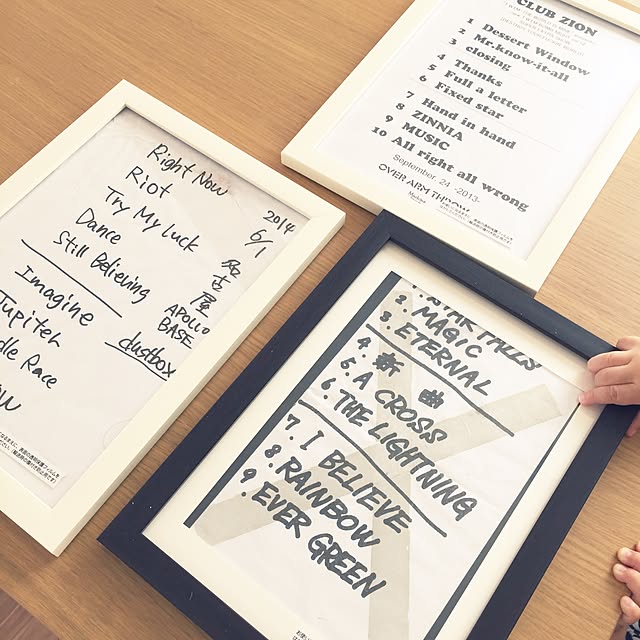 Right Now
Riot
Try My Luck
Dance
Still Believing
Imagine
Jupiter
dle Race
2014
6/1
名古屋
APOLLO
BASE
dustbox
CLUB ZION
1 Dessert Window
2 Mr.know-it-all
3 closing
4 Thanks
5 Full a letter
6 Fixed star
7 Hand in hand
8 ZINNIA
9 MUSIC
10 All right all wrong
September. 24 -2013-
OVER ARM THROW
2. MAGIC
3. ETERNAL
4. 新曲
5. A CROSS
6. THE LIGHTNING
7. I BELIEVE
8. RAINBOW
9. EVER GREEN